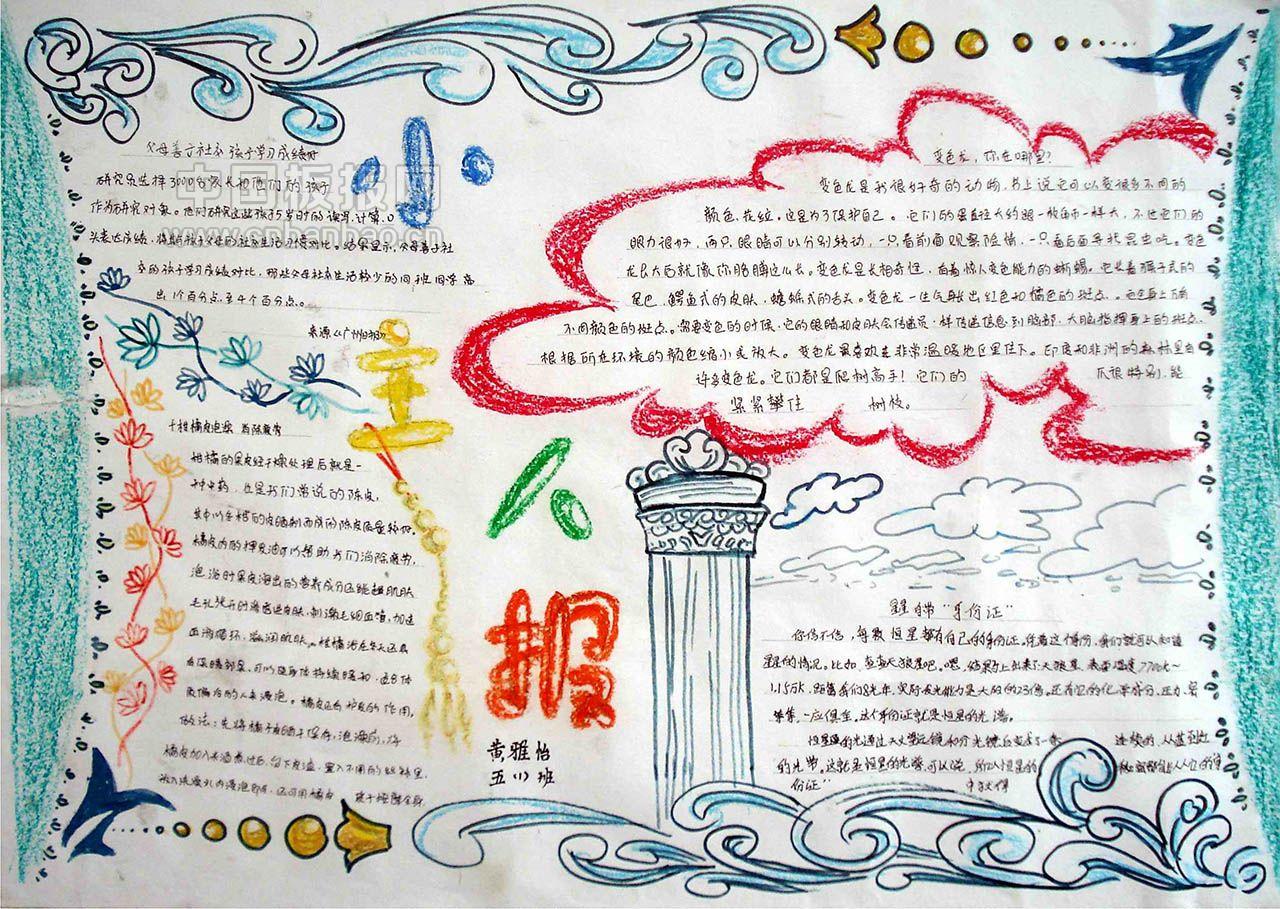 小主人报
黄雅怡
五(1)班
父母善于社交 孩子学习成绩好
研究员选择3000名家长和他们的孩子
作为研究对象。他们研究这些孩子5岁时的读写、计算、口
头表达成绩,将
孩子父母的社会生活习惯对比。结果显示,父母善于社
交的孩子学习成绩对比,那些父母社会生活较少的同班同学高
出1个百分点至4个百分点。
来源《广州日报》
干柑橘皮泡澡 消除疲劳
柑橘的果皮经干燥处理后就是一
种中药,也是我们常说的陈皮,
其中以冬柑的皮晒制而成的陈皮质量较好。
橘皮内的挥发油可以帮助我们消除疲劳,
泡浴时果皮溶出的营养成分还能趁肌肤
毛孔张开时渗透进皮肤,刺激毛细血管,加速
血液循环,滋润肌肤。柑橘浴在冬天还具
有保暖效果,可以使身体持续暖和,适合体
质偏冷的人来浸泡。橘皮还有护发的作用。
做法:先将橘子皮晒干保存,泡澡前,将
变色龙,你在哪里?
变色龙是我很好奇的动物,书上说它可以变很多不同的
颜色、花纹。这是为了保护自己。它们的最大的跟一枚角币一样大,不过它们的
眼力很好,两只眼睛可以分别转动,一只看前面观察险情,一只看后面寻找昆虫吃。变色
龙长大后就像你胳膊这么长。变色龙是长相奇怪,有着惊人变色能力的蜥蜴。它长着猴子式的
尾巴、鳄鱼式的皮肤,蟾蜍式的舌头。变色龙一生气就出红色和橘色的斑点。
不同颜色的斑点。需要变色的时候,它的眼睛和皮肤会传递信息到脑部,大脑指挥身上的斑点
根据所在环境的颜色缩小或放大。变色龙最喜欢在非常温暖地区里住下。印度和非洲的森林里有
许多变色龙。它们都是爬树高手!它们的 爪很特别,能
紧紧攀住 树枝。
星星自带“身份证”
你信不信,每颗恒星都有自己的身份证,凭着这个身份,我们就可以知道
星星的情况。比如,查查天狼星吧。嗯,结果马上出来了:天狼星,表面温度7700℃~
1.15万K,距离我们8光年,实际发光能力是太阳的23倍。还有它的化学成分、压力、密
等等,一应俱全。这个身份证就是恒星的光谱。
恒星的光通过天文望远镜和分光镜后变成了一条 连续的、从蓝到红
的光带。这就是恒星的光谱。可以说,所以恒星的 秘密都能从它的“身
份证”
中国板报网
www.cnbanbao.cn